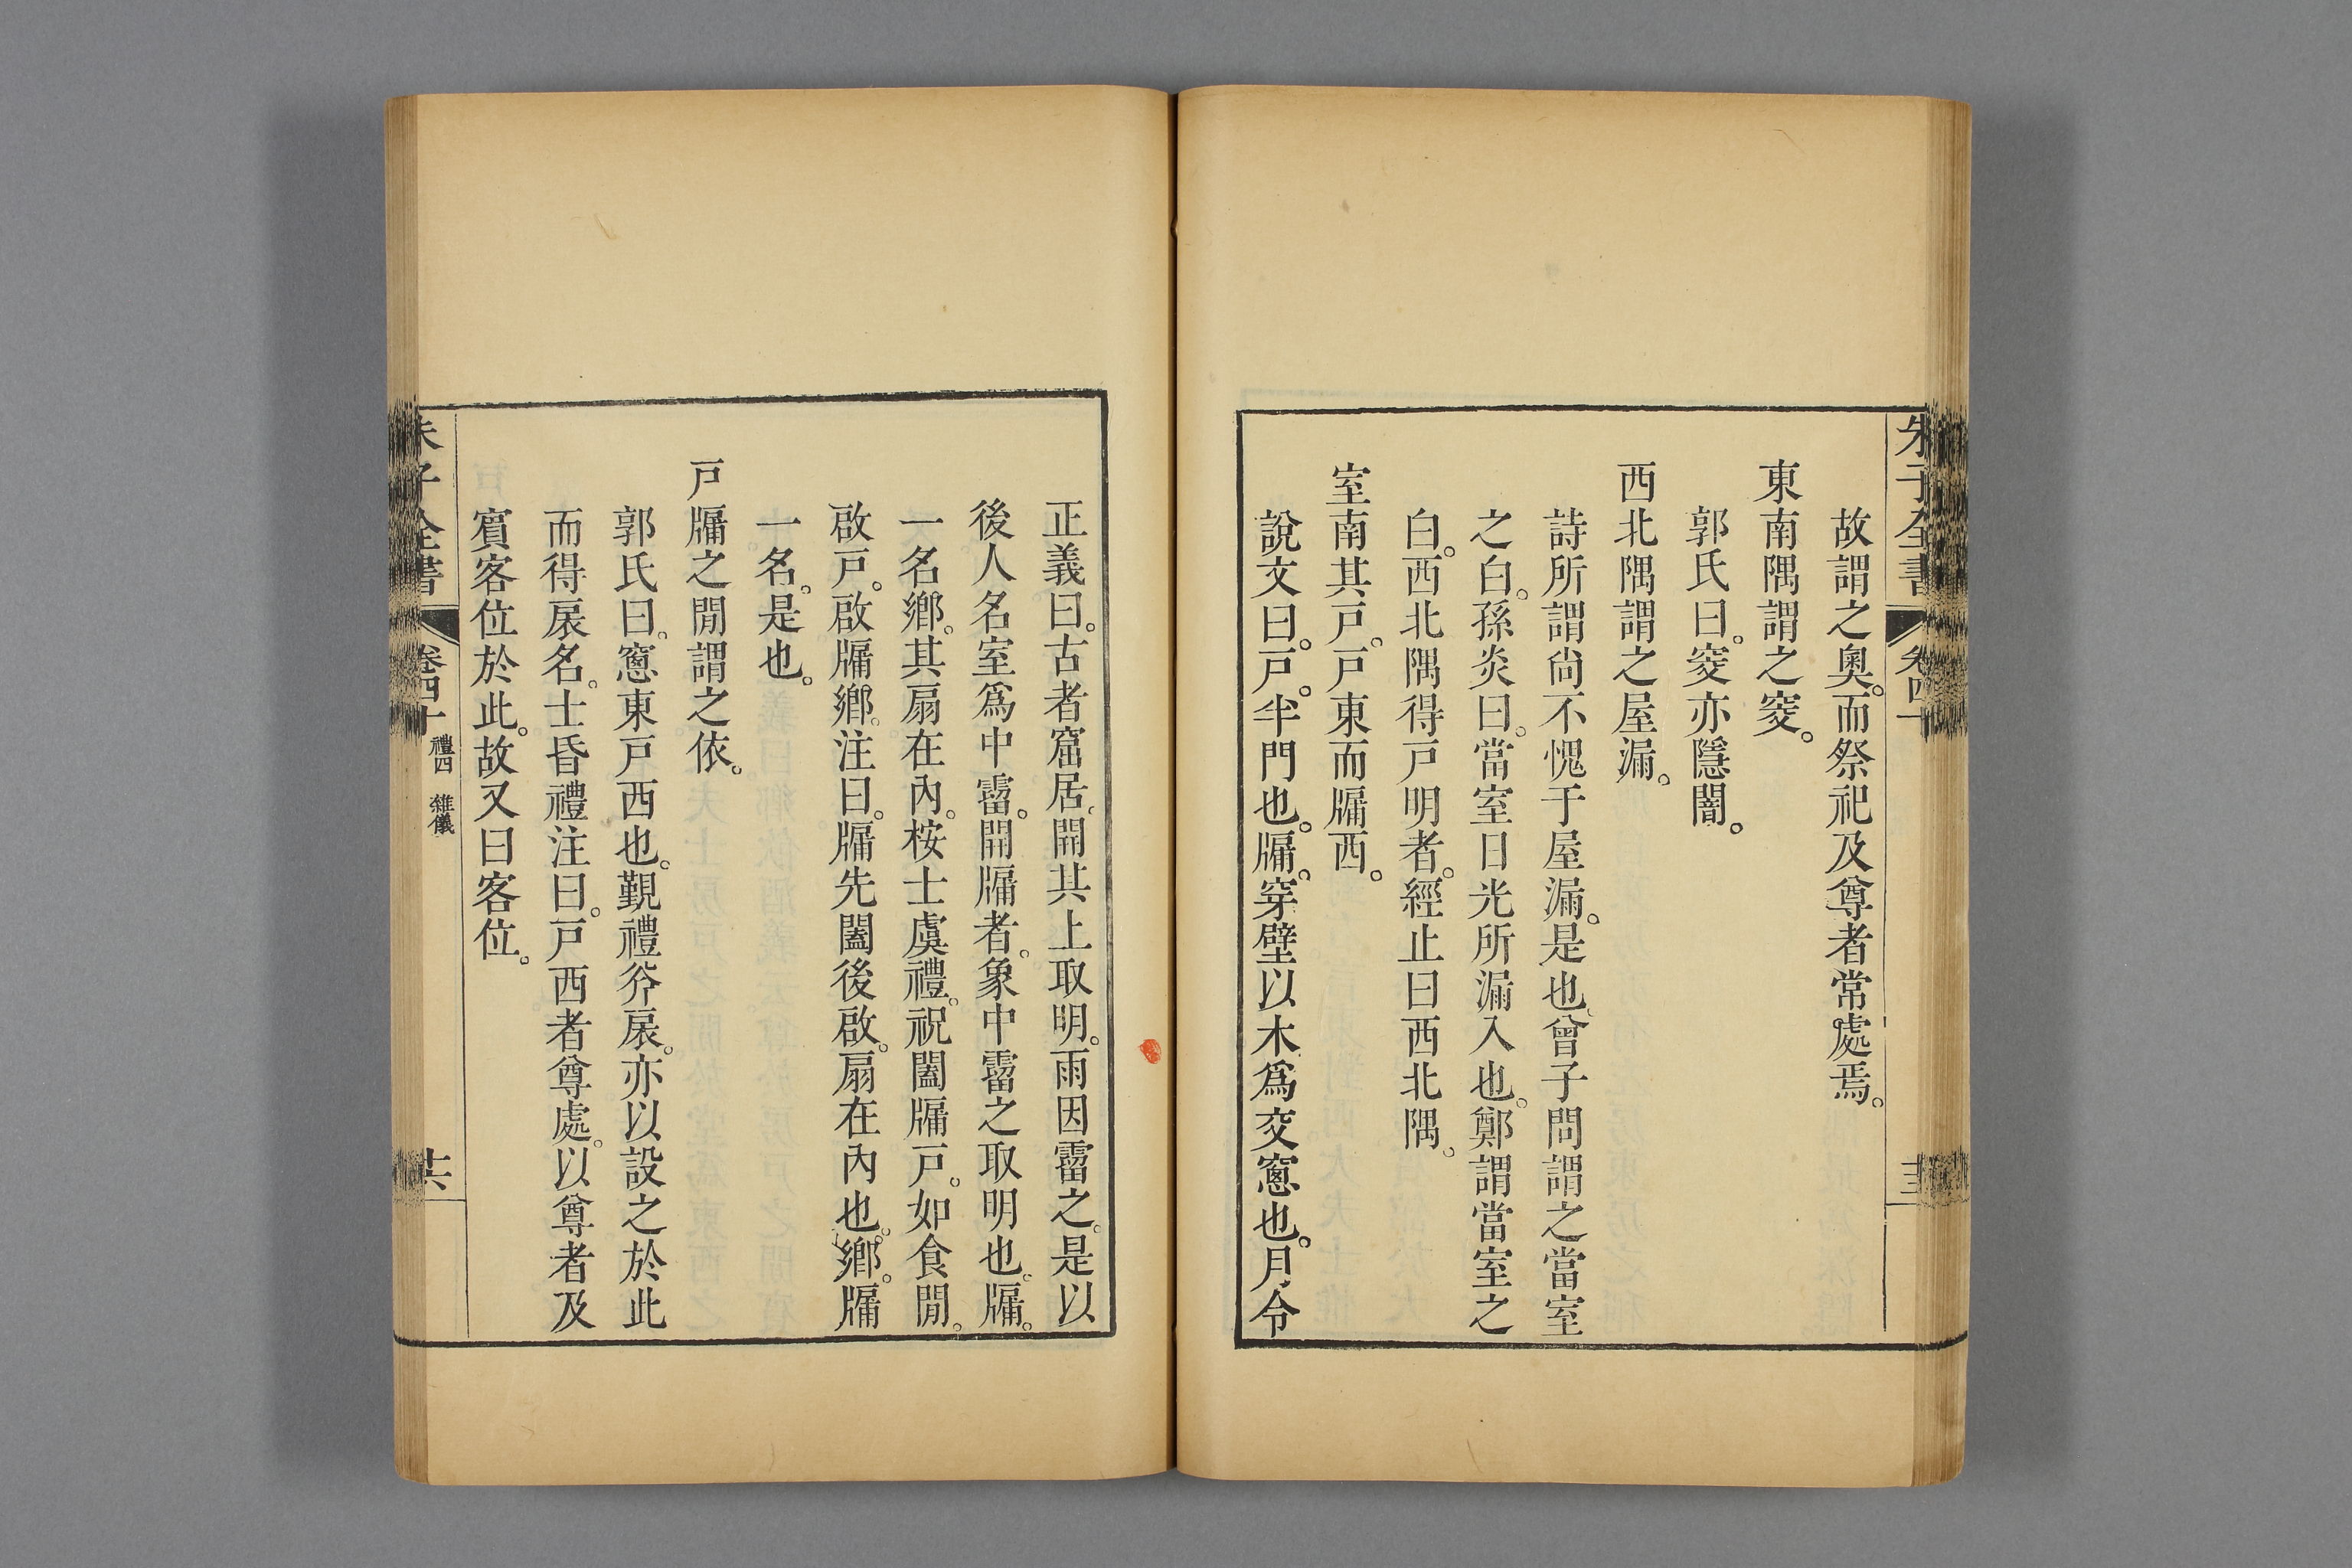 故謂之奧。而祭祀及尊者常處焉。
東南隅謂之窔。
郭氏曰。窔亦隱闇。
西北隅謂之屋漏。
詩所謂尙不愧于屋漏。是也。曾子問謂之當室
之白。孫炎曰。當室日光所漏入也。鄭謂當室之
白。西北隅得戸明者。經止曰西北隅。
室南其戸。戸東而牖西。
說文曰。戸。半門也。牖。穿壁以木爲交窻也。月令
正義曰。古者窟居。開其上取明。雨因霤之。是以
後人名室爲中霤。開牖者。象中霤之取明也。牖。
一名鄉。其扇在內。桉士虞禮。祝闔牖戸。如食閒。
啟戸。啟牖鄉。注曰。牖先闔後啟。扇在內也。鄉。牖
一名。是也。
戸牖之閒謂之依。
郭氏曰。窻東戸西也。覲禮斧扆。亦以設之於此
而得扆名。士昏禮注曰。戸西者尊處。以尊者及
賓客位於此。故又曰客位。
朱子全書
卷四十
禮四 雜儀
十六